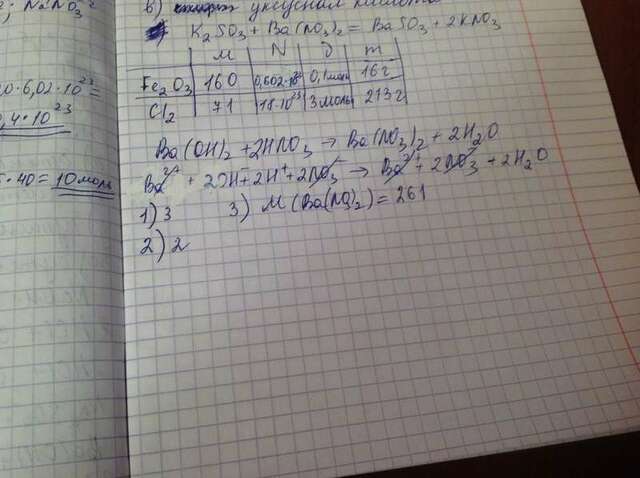 ; NaNO3
0·6,02·10²³=
,4·10²³
·40=10моль
в) уксусная кислота
K2SO3 + Ba(NO3)2 = BaSO3 + 2KNO3
M N υ m
Fe2O3 160 0,602·10²³ 0,1моль 16г
Cl2 71 18·10²³ 3моль 213г
Ba(OH)2 + 2HNO3 → Ba(NO3)2 + 2H2O
Ba²⁺ + 2OH⁻ + 2H⁺ + 2NO3⁻ → Ba²⁺ + 2NO3⁻ + 2H2O
1) 3 3) M(Ba(NO3)2) = 261
2) 2